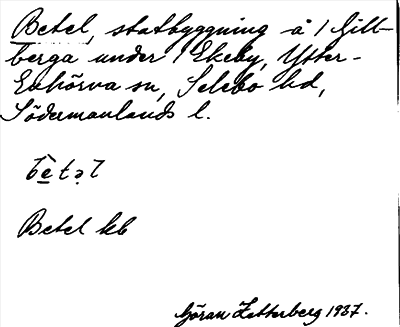 Betel, statbyggning å 1 Gill-
berga under 1 Ekeby, Ytter-
Enhörna sn, Selebo hd,
Södermanlands l.
bètəl
Betel kb
Göran Zetterberg 1937.